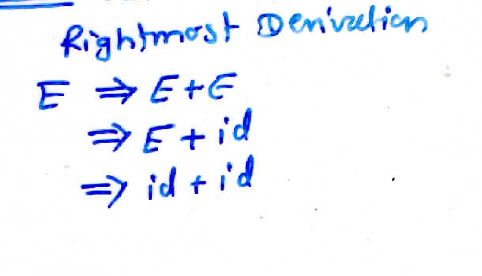 Rightmost Derivation
E ⇒ E+E
⇒ E + id
⇒ id + id